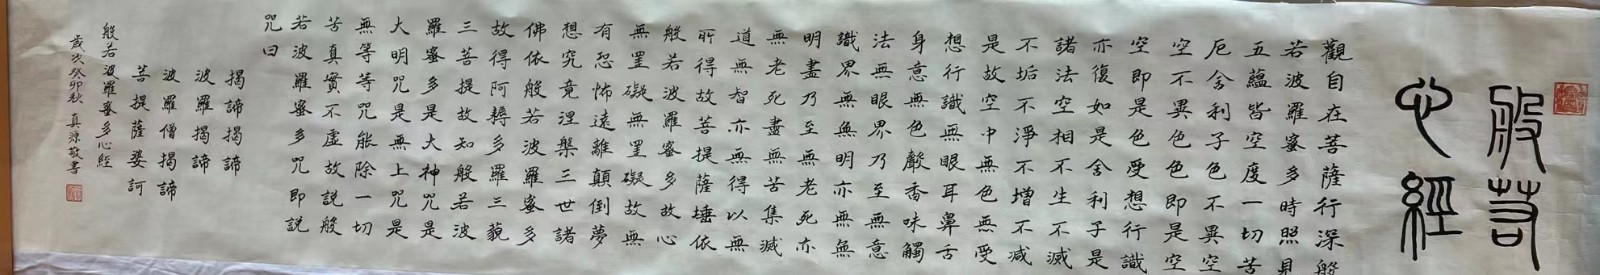 般若
心經
觀自在菩薩行深般
若波羅蜜多時照見
五蘊皆空度一切苦
厄舍利子色不異空
空不異色色即是空
空即是色受想行識
亦復如是舍利子是
諸法空相不生不滅
不垢不淨不增不減
是故空中無色無受
想行識無眼耳鼻舌
身意無色聲香味觸
法無眼界乃至無意
識界無無明亦無無
明盡乃至無老死亦
無老死盡無苦集滅
道無智亦無得以無
所得故菩提薩埵依
般若波羅蜜多故心
無罣礙無罣礙故無
有恐怖遠離顛倒夢
想究竟涅槃三世諸
佛依般若波羅蜜多
故得阿耨多羅三藐
三菩提故知般若波
羅蜜多是大神咒是
大明咒是無上咒是
無等等咒能除一切
苦真實不虛故說般
若波羅蜜多咒即說
咒曰
揭諦揭諦
波羅揭諦
波羅僧揭諦
菩提薩婆訶
般若波羅蜜多心經
歲次癸卯秋 真 敬書